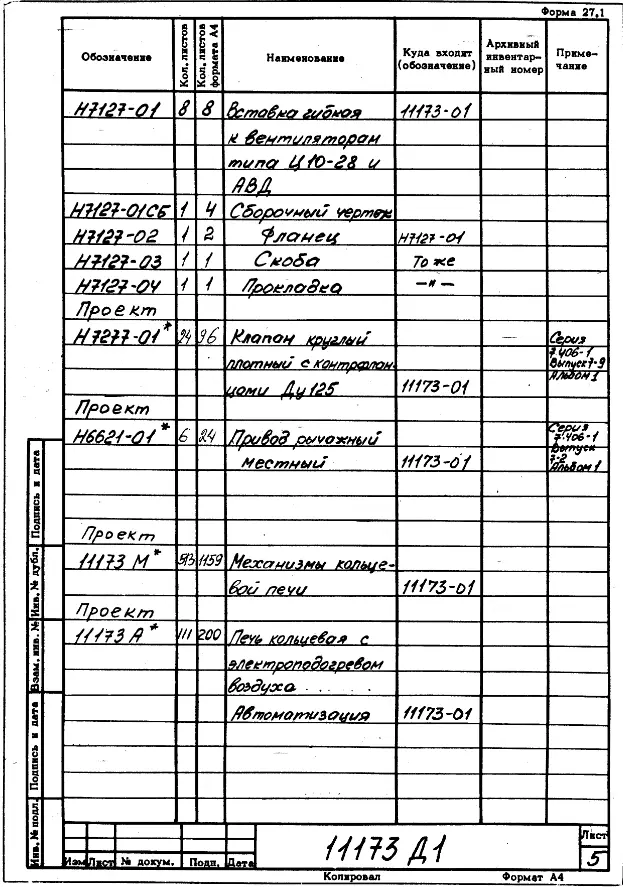 Форма 27,1
Обозначение Кол. листов Кол. листов формата А4 Наименование Куда входит (обозначение) Архивный инвентар- ный номер Приме- чание
Н7127-01 8 8 Вставка гибкая 11173-01
к вентиляторам
типа Ц10-28 и
АВД
Н7127-01СБ 1 4 Сборочный чертеж
Н7127-02 1 2 Фланец Н7127-01
Н7127-03 1 1 Скоба То же
Н7127-04 1 1 Прокладка —"—
Проект
Н7277-01* 24 96 Клапан круглый Серия
плотный с контрфлан- 7.406-1 Выпуск 7-9
цами Ду125 11173-01 Альбом 1
Проект
Н6621-01* 6 24 Привод рычажный Серия 7.406-1
местный 11173-01 Выпуск 7-2 Альбом 1
Проект
11173 М* 513 1159 Механизмы кольце-
вой печи 11173-01
Проект
11173 А* 111 200 Печь кольцевая с
электроподогревом
воздуха . . . . .
Автоматизация 11173-01
Инв. № подл. Подпись и дата Взам. инв. № Инв. № дубл. Подпись и дата
Изм Лист № докум. Подп. Дата
11173 Д1
Лист
5
Копировал Формат А4